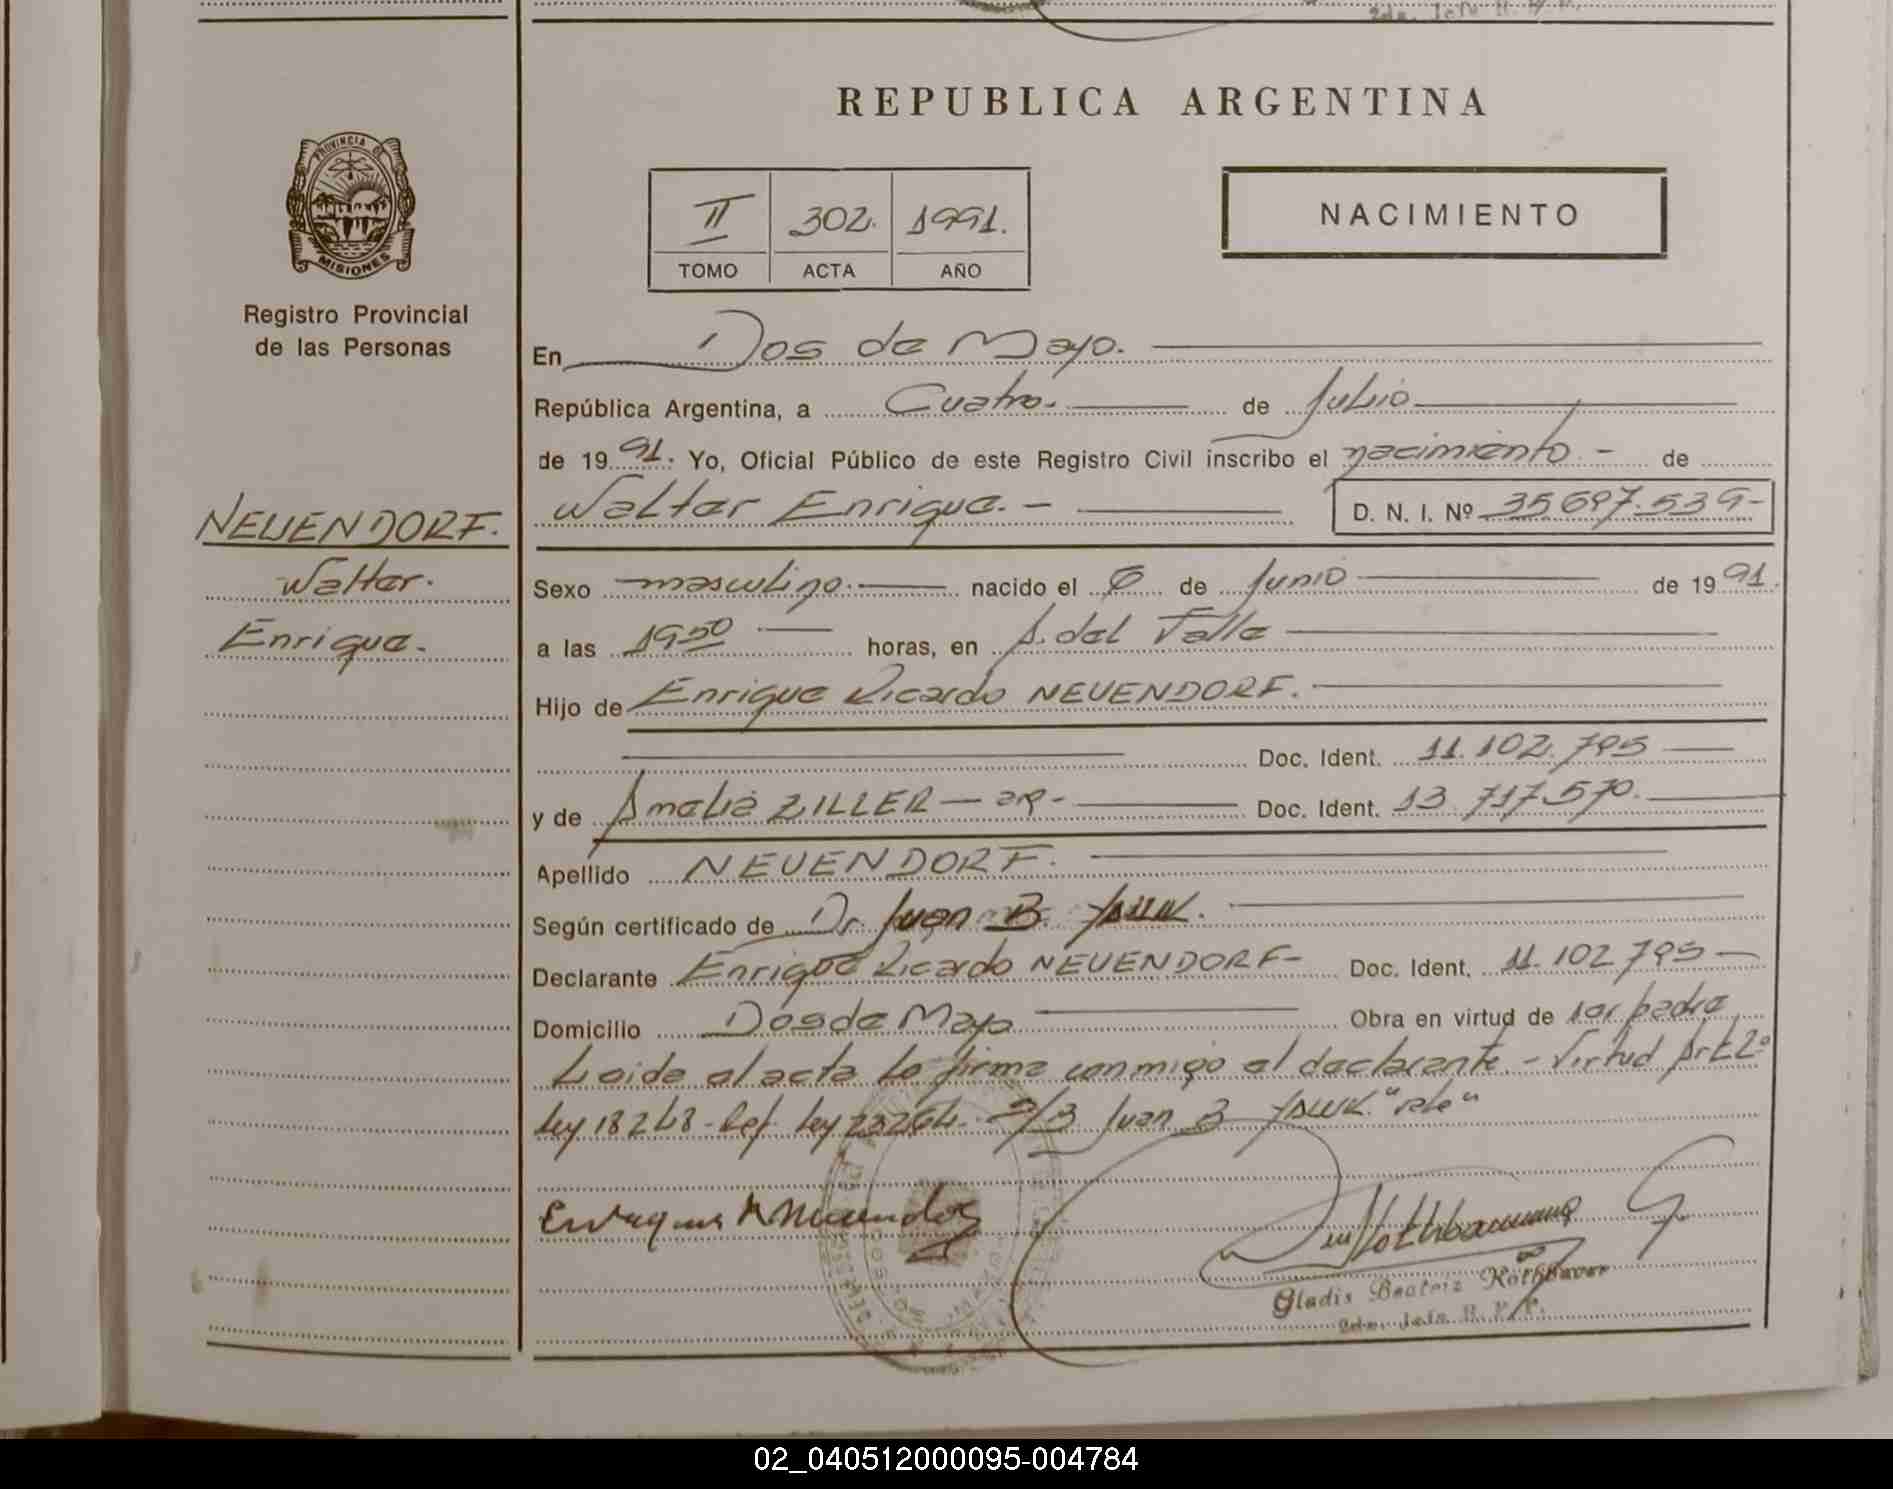 REPUBLICA ARGENTINA
PROVINCIA DE
MISIONES
Registro Provincial
de las Personas
II 302. 1991.
TOMO ACTA AÑO
NACIMIENTO
En Dos de Mayo.
República Argentina, a Cuatro. de Julio
de 19 91. Yo, Oficial Público de este Registro Civil inscribo el nacimiento - de
Walter Enrique. - D. N. I. Nº 35697.539-
NEUENDORF.
Walter.
Enrique.
Sexo masculino. nacido el 6 de Junio de 19 91.
a las 1950 horas, en A. del Valle
Hijo de Enrique Ricardo NEUENDORF.
Doc. Ident. 11.102.795
y de Amalia ZILLER - ar- Doc. Ident. 13.717.570.
Apellido NEUENDORF.
Según certificado de Dr. Juan B.
Declarante Enrique Ricardo NEUENDORF- Doc. Ident. 11.102.795
Domicilio Dos de Mayo Obra en virtud de ser padre
Leida el acta la firma conmigo el declarante. - Virtud Art 2º
ley 18248- Ref. ley 23264. - S/B Juan B "vale"
Gladis Beatriz Rothbauer
2da. Jefe R. P. P.
02_040512000095-004784